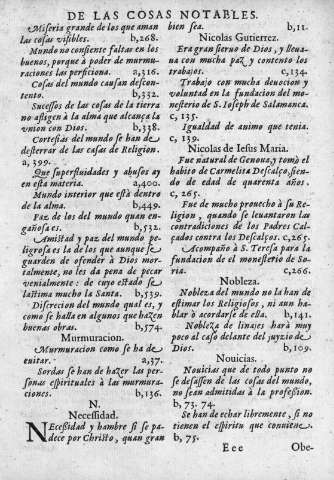 DE LAS COSAS NOTABLES.
Miseria grande de los que aman
las cosas visibles. b,268.
Mundo no consiente faltas en los
buenos, porque à poder de murmu-
raciones las perficiona. a,316.
Cosas del mundo causan descon-
tento. b,332.
Sucessos de las cosas de la tierra
no afligen à la alma que alcança la
vnion con Dios. b,338.
Cortesias del mundo se han de
desterrar de las casas de Religion.
a, 399.
Que superfluidades y abusos ay
en esta materia. a,400.
Mundo interior que està dentro
de la alma. b,449.
Paz de los del mundo quan en-
gañosa es. b,532.
Amistad y paz del mundo pe-
ligrosa es la de los que aunque se
guarden de ofender à Dios mor-
talmente, no les da pena de pecar
venialmente: de cuyo estado se
lastima mucho la Santa. b,539.
Discrecion del mundo qual es, y
como se halla en algunos que hazen
buenas obras. b,574.
Murmuracion.
Murmuracion como se ha de
euitar. a,37.
Sordas se han de hazer las per-
sonas espirituales à las murmura-
ciones. b,136.
N.
Necessidad.
Necessidad y hambre si se pa-
dece por Christo, quan gran
bien sea. b,11.
Nicolas Gutierrez.
Era gran sieruo de Dios, y lleua-
ua con mucha paz y contento los
trabajos. c,134.
Trabajo con mucha deuocion y
voluntad en la fundacion del mo-
nesterio de S. Ioseph de Salamanca.
c, 135.
Igualdad de animo que tenia.
c, 139.
Nicolas de Iesus Maria.
Fue natural de Genoua, y tomò el
habito de Carmelita Descalço, sien-
do de edad de quarenta años.
c, 265.
Fue de mucho prouecho à su Re-
ligion, quando se leuantaron las
contradiciones de los Padres Cal-
çados contra los Descalços. c,265.
Acompañò à S. Teresa para la
fundacion de el monesterio de So-
ria. c,266.
Nobleza.
Nobleza del mundo no la han de
estimar los Religiosos, ni aun ha-
blar ò acordarse de ella. b,141.
Nobleza de linajes harà muy
poco al caso delante del juyzio de
Dios. b,109.
Nouicias.
Nouicias que de todo punto no
se desassen de las cosas del mundo,
no sean admitidas à la profession.
b, 73. 74.
Se han de echar libremente, si no
tienen el espiritu que conuiene.
b, 75.
Eee Obe-